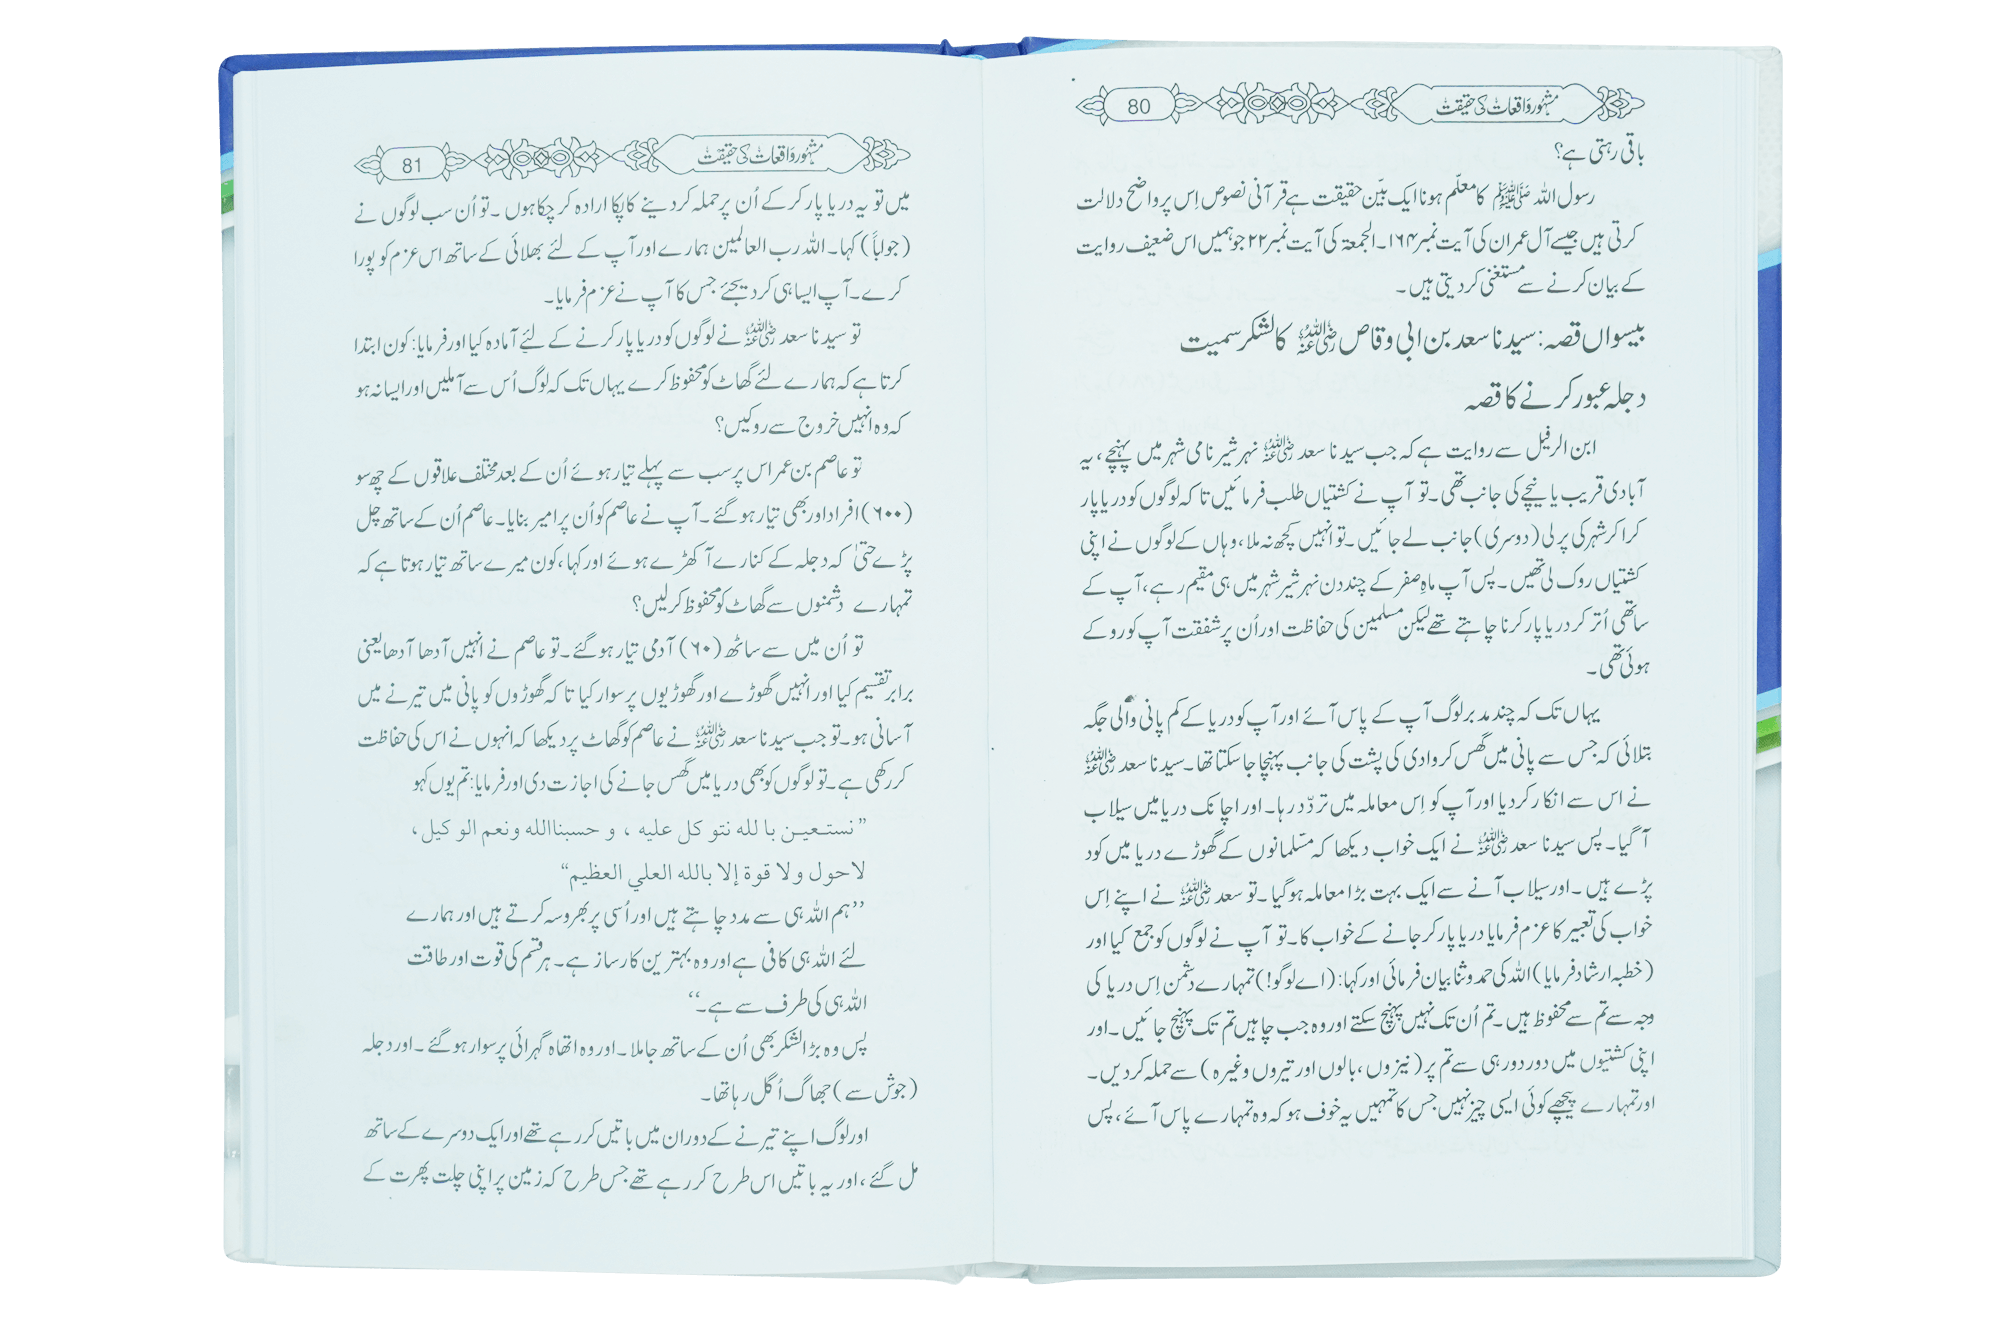 مشہور واقعات کی حقیقت
80
باقی رہتی ہے؟
رسول اللہ ﷺ کا معلّم ہونا ایک بیّن حقیقت ہے قرآنی نصوص اِس پر واضح دلالت
کرتی ہیں جیسے آل عمران کی آیت نمبر ۱۶۴۔ الجمعۃ کی آیت نمبر ۲۲ جو ہمیں اس ضعیف روایت
کے بیان کرنے سے مستغنی کر دیتی ہیں۔
بیسواں قصہ: سیدنا سعد بن ابی وقاص رضی اللہ عنہ کا لشکر سمیت
دجلہ عبور کرنے کا قصہ
ابن الرفیل سے روایت ہے کہ جب سیدنا سعد رضی اللہ عنہ نہر شیر نامی شہر میں پہنچے، یہ
آبادی قریب یا نیچے کی جانب تھی۔ تو آپ نے کشتیاں طلب فرمائیں تاکہ لوگوں کو دریا پار
کرا کر شہر کی پرلی (دوسری) جانب لے جائیں۔ تو انہیں کچھ نہ ملا، وہاں کے لوگوں نے اپنی
کشتیاں روک لی تھیں۔ پس آپ ماہِ صفر کے چند دن نہر شیر شہر میں ہی مقیم رہے، آپ کے
ساتھی اُتر کر دریا پار کرنا چاہتے تھے لیکن مسلمین کی حفاظت اور اُن پر شفقت آپ کو روکے
ہوئی تھی۔
یہاں تک کہ چند مدبر لوگ آپ کے پاس آئے اور آپ کو دریا کے کم پانی والی جگہ
بتلائی کہ جس سے پانی میں گھس کر وادی کی پشت کی جانب پہنچا جا سکتا تھا۔ سیدنا سعد رضی اللہ عنہ
نے اس سے انکار کر دیا اور آپ کو اِس معاملہ میں تردّد رہا۔ اور اچانک دریا میں سیلاب
آ گیا۔ پس سیدنا سعد رضی اللہ عنہ نے ایک خواب دیکھا کہ مسلمانوں کے گھوڑے دریا میں کود
پڑے ہیں۔ اور سیلاب آنے سے ایک بہت بڑا معاملہ ہو گیا۔ تو سعد رضی اللہ عنہ نے اپنے اِس
خواب کی تعبیر کا عزم فرمایا دریا پار کر جانے کے خواب کا۔ تو آپ نے لوگوں کو جمع کیا اور
(خطبہ ارشاد فرمایا) اللہ کی حمد و ثنا بیان فرمائی اور کہا: (اے لوگو!) تمہارے دشمن اِس دریا کی
وجہ سے تم سے محفوظ ہیں۔ تم اُن تک نہیں پہنچ سکتے اور وہ جب چاہیں تم تک پہنچ جائیں۔ اور
اپنی کشتیوں میں دور دور ہی سے تم پر (نیزوں، بالوں اور تیروں وغیرہ) سے حملہ کر دیں۔
اور تمہارے پیچھے کوئی ایسی چیز نہیں جس کا تمہیں یہ خوف ہو کہ وہ تمہارے پاس آئے، پس
مشہور واقعات کی حقیقت
81
میں تو یہ دریا پار کر کے اُن پر حملہ کر دینے کا پکا ارادہ کر چکا ہوں۔ تو اُن سب لوگوں نے
(جواباً) کہا۔ اللہ رب العالمین ہمارے اور آپ کے لئے بھلائی کے ساتھ اس عزم کو پورا
کرے۔ آپ ایسا ہی کر دیجئے جس کا آپ نے عزم فرمایا۔
تو سیدنا سعد رضی اللہ عنہ نے لوگوں کو دریا پار کرنے کے لئے آمادہ کیا اور فرمایا: کون ابتدا
کرتا ہے کہ ہمارے لئے گھاٹ کو محفوظ کرے یہاں تک کہ لوگ اُس سے آملیں اور ایسا نہ ہو
کہ وہ انہیں خروج سے روکیں؟
تو عاصم بن عمر اس پر سب سے پہلے تیار ہوئے اُن کے بعد مختلف علاقوں کے چھ سو
(۶۰۰) افراد اور بھی تیار ہو گئے۔ آپ نے عاصم کو اُن پر امیر بنایا۔ عاصم اُن کے ساتھ چل
پڑے حتیٰ کہ دجلہ کے کنارے آ کھڑے ہوئے اور کہا، کون میرے ساتھ تیار ہوتا ہے کہ
تمہارے دشمنوں سے گھاٹ کو محفوظ کر لیں؟
تو اُن میں سے ساٹھ (۶۰) آدمی تیار ہو گئے۔ تو عاصم نے انہیں آدھا آدھا یعنی
برابر تقسیم کیا اور انہیں گھوڑے اور گھوڑیوں پر سوار کیا تا کہ گھوڑوں کو پانی میں تیرنے میں
آسانی ہو۔ تو جب سیدنا سعد رضی اللہ عنہ نے عاصم کو گھاٹ پر دیکھا کہ انہوں نے اس کی حفاظت
کر رکھی ہے۔ تو لوگوں کو بھی دریا میں گھس جانے کی اجازت دی اور فرمایا: تم یوں کہو
”نستعین با لله نتو کل علیه ، و حسبناالله ونعم الو کیل،
لاحول ولا قوة إلا بالله العلي العظیم“
’’ہم اللہ ہی سے مدد چاہتے ہیں اور اُسی پر بھروسہ کرتے ہیں اور ہمارے
لئے اللہ ہی کافی ہے اور وہ بہترین کارساز ہے۔ ہر قسم کی قوت اور طاقت
اللہ ہی کی طرف سے ہے۔‘‘
پس وہ بڑا لشکر بھی اُن کے ساتھ جا ملا۔ اور وہ اتھاہ گہرائی پر سوار ہو گئے۔ اور دجلہ
(جوش سے) جھاگ اُگل رہا تھا۔
اور لوگ اپنے تیرنے کے دوران میں باتیں کر رہے تھے اور ایک دوسرے کے ساتھ
مل گئے، اور یہ باتیں اس طرح کر رہے تھے جس طرح کہ زمین پر اپنی چلت پھرت کے